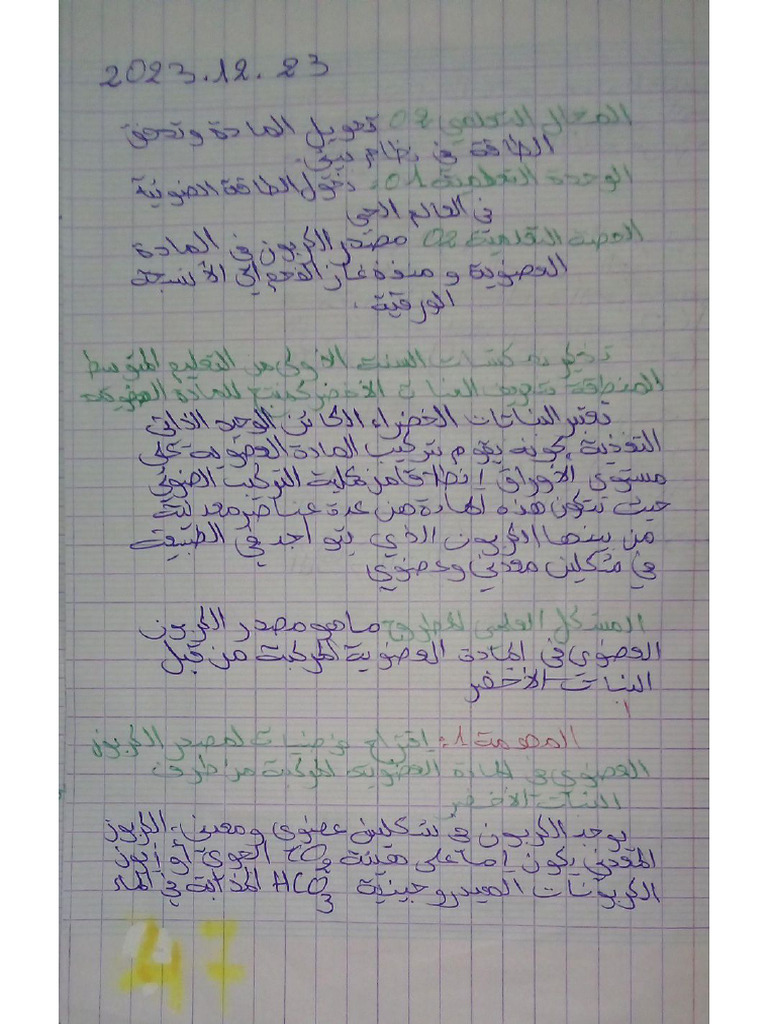 2023.12.23
المجال التعلمي 02 تحويل المادة وتدفق
الطاقة في نظام بيئي.
الوحدة التعلمية 01: تحول الطاقة الضوئية
في العالم الحي
الحصة التعلمية 02 مصدر الكربون في المادة
العضوية و منفذ غاز الفحم إلى الأنسجة
الورقية.
تذكير بمكتسبات السنة الأولى من التعليم المتوسط
المتعلقة بتعريف النبات الأخضر كمنتج للمادة العضوية
تعتبر النباتات الخضراء الكائن الوحيد الذاتي
التغذية كونه يقوم بتركيب المادة العضوية على
مستوى الأوراق إنطلاقا من عملية التركيب الضوئي
حيث تتكون هذه المادة من عدة عناصر معدنية
من بينها الكربون الذي يتواجد في الطبيعة
في شكلين معدني وعضوي
المشكل العلمي المطروح ماهو مصدر الكربون
العضوي في المادة العضوية المركبة من قبل
النبات الأخضر
المهمة 1: إقتراح فرضيات لمصدر الكربون
العضوي في المادة العضوية المركبة من طرف
النبات الأخضر
يوجد الكربون في شكلين عضوي ومعدني، الكربون
المعدني يكون إما على هيئة CO2 الهوى أو أيون
الكربونات الهيدروجينية HCO3 المذابة في الماء
47